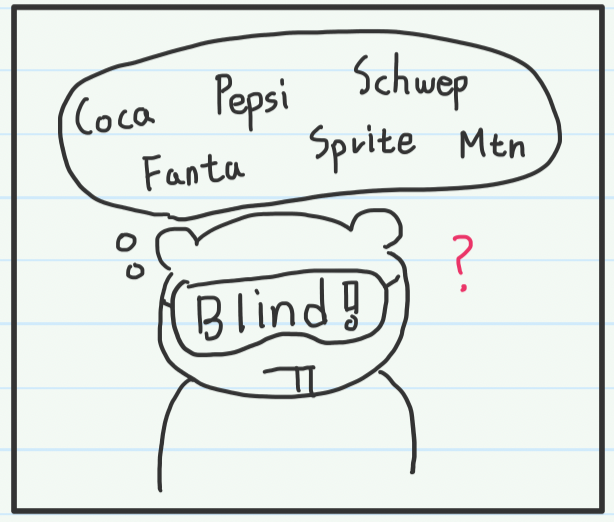 Coca Pepsi Schwep
Fanta Sprite Mtn
?
Blind!